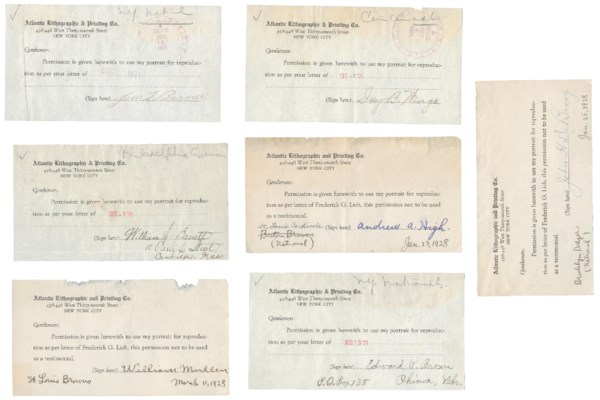 N.Y. Nationals
Atlantic Lithographic & Printing Co.
438-448 West Thirty-seventh Street
NEW YORK CITY
Gentlemen:
Permission is given herewith to use my portrait for reproduc-
tion as per your letter of
(Sign here)
Atlantic Lithographic & Printing Co.
438-448 West Thirty-seventh Street
NEW YORK CITY
Gentlemen:
Permission is given herewith to use my portrait for reproduc-
tion as per your letter of
(Sign here)
Atlantic Lithographic & Printing Co.
438-448 West Thirty-seventh Street
NEW YORK CITY
Gentlemen:
Permission is given herewith to use my portrait for reproduc-
tion as per your letter of
(Sign here) William J. Barrett
Cambridge Mass
Atlantic Lithographic and Printing Co.
438-448 West Thirty-seventh Street
NEW YORK CITY
Gentlemen:
Permission is given herewith to use my portrait for reproduc-
tion as per letter of Frederick G. Lieb, this permission not to be used
as a testimonial.
(Sign here) Andrew A. High.
St. Louis Cardinals
Boston Braves
(National)
Jan. 27, 1928
Atlantic Lithographic and Printing Co.
438-448 West Thirty-seventh Street
NEW YORK CITY
Gentlemen:
Permission is given herewith to use my portrait for reproduc-
tion as per letter of Frederick G. Lieb, this permission not to be used
as a testimonial.
(Sign here) William Mullen
St Louis Browns
March 11, 1928
N.Y. Nationals
Atlantic Lithographic & Printing Co.
438-448 West Thirty-seventh Street
NEW YORK CITY
Gentlemen:
Permission is given herewith to use my portrait for reproduc-
tion as per your letter of
(Sign here) Edward V. Brown
P.O. Box 135
Atlantic Lithographic and Printing Co.
438-448 West Thirty-seventh Street
NEW YORK CITY
Gentlemen:
Permission is given herewith to use my portrait for reproduc-
tion as per letter of Frederick G. Lieb, this permission not to be used
as a testimonial.
(Sign here) John
Brooklyn Dodgers
(National)
Jan. 25, 1928